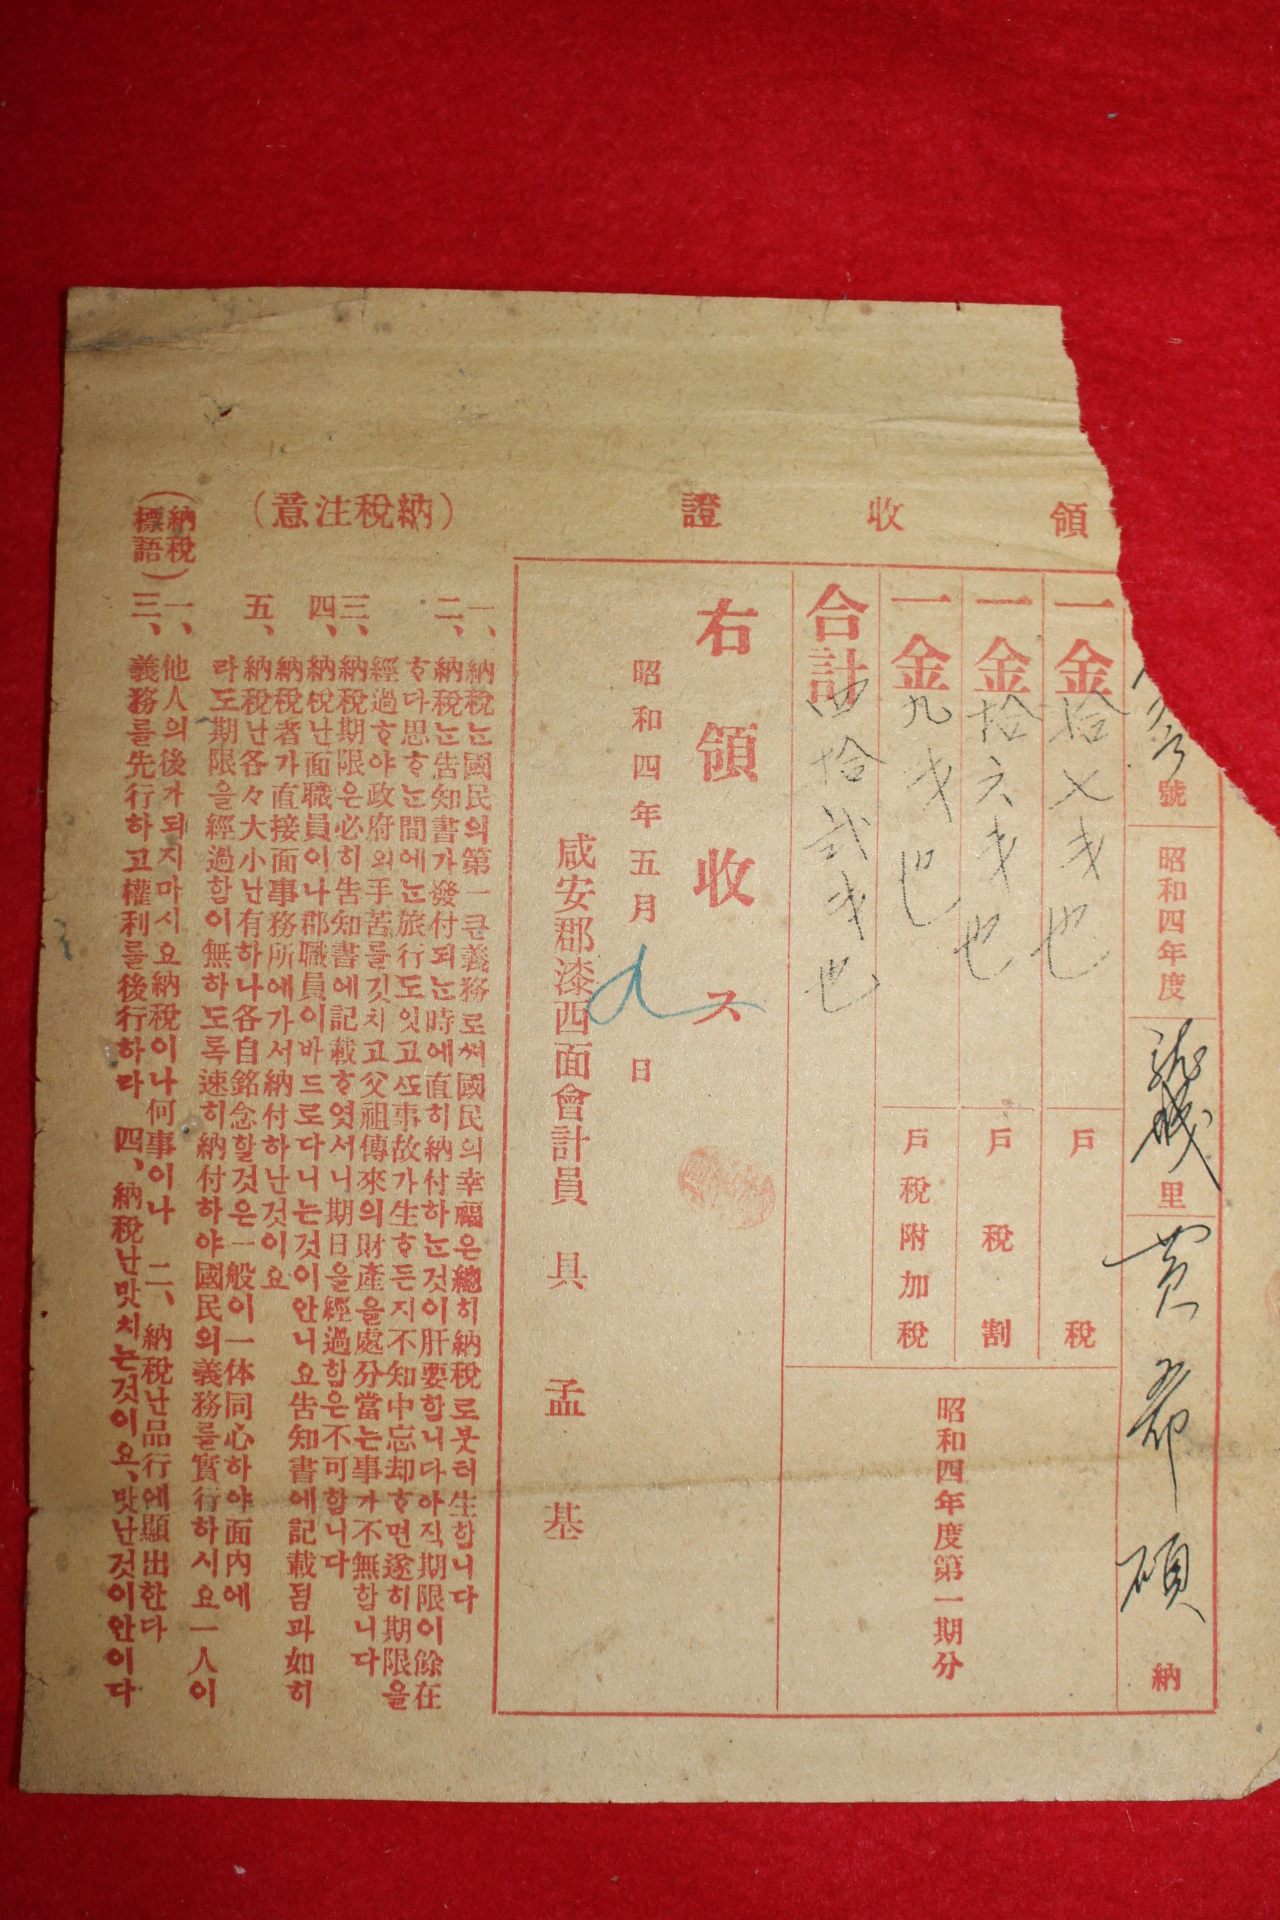 領收證
號 昭和四年度 里 黃 碩 納
一金拾七戔也 戶稅
一金拾六戔也 戶稅割
一金九戔也 戶稅附加稅
合計四拾貳戔也
昭和四年度第一期分
右領收ス
昭和四年五月 日
咸安郡漆西面會計員 具孟基
(納稅注意)
一、納稅는國民의第一큰義務로써國民의幸福은總히納稅로붓터生합니다
二、納稅는告知書가發付되는時에直히納付하는것이肝要합니다아직期限이餘在
ᄒᆞ다思ᄒᆞ는間에는旅行도잇고또事故가生ᄒᆞ든지不知中忘却ᄒᆞ면遂히期限을
經過ᄒᆞ야政府의手苦를깃치고父祖傳來의財產을處分當는事가不無합니다
三、納稅期限은必히告知書에記載ᄒᆞ엿서니期日을經過함은不可합니다
四、納稅난面職員이나郡職員이바드로다니는것이안니요告知書에記載됨과如히
納稅者가直接面事務所에가서納付하난것이요
五、納稅난各々大小난有하나各自銘念할것은一般이一体同心하야面內에
라도期限을經過함이無하도록速히納付하야國民의義務를實行하시요一人이
(納稅標語)
一、他人의後가되지마시요納稅이나何事이나 二、納稅난品行에顯出한다
三、義務를先行하고權利를後行하라 四、納稅난맛치는것이요、맛난것이안이다